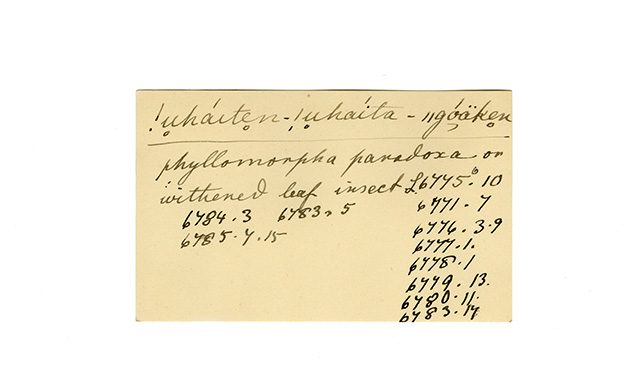 !u̥háite̥n - !u̥haíta - ııgó̥äke̥n
phyllomorpha paradoxa or
withered leaf insect £6775.10
6784.3 6783.5 6771.7
6785.7.15 6776.3.9
6777.1.
6778.1
6779.13.
6780.11.
6783.14